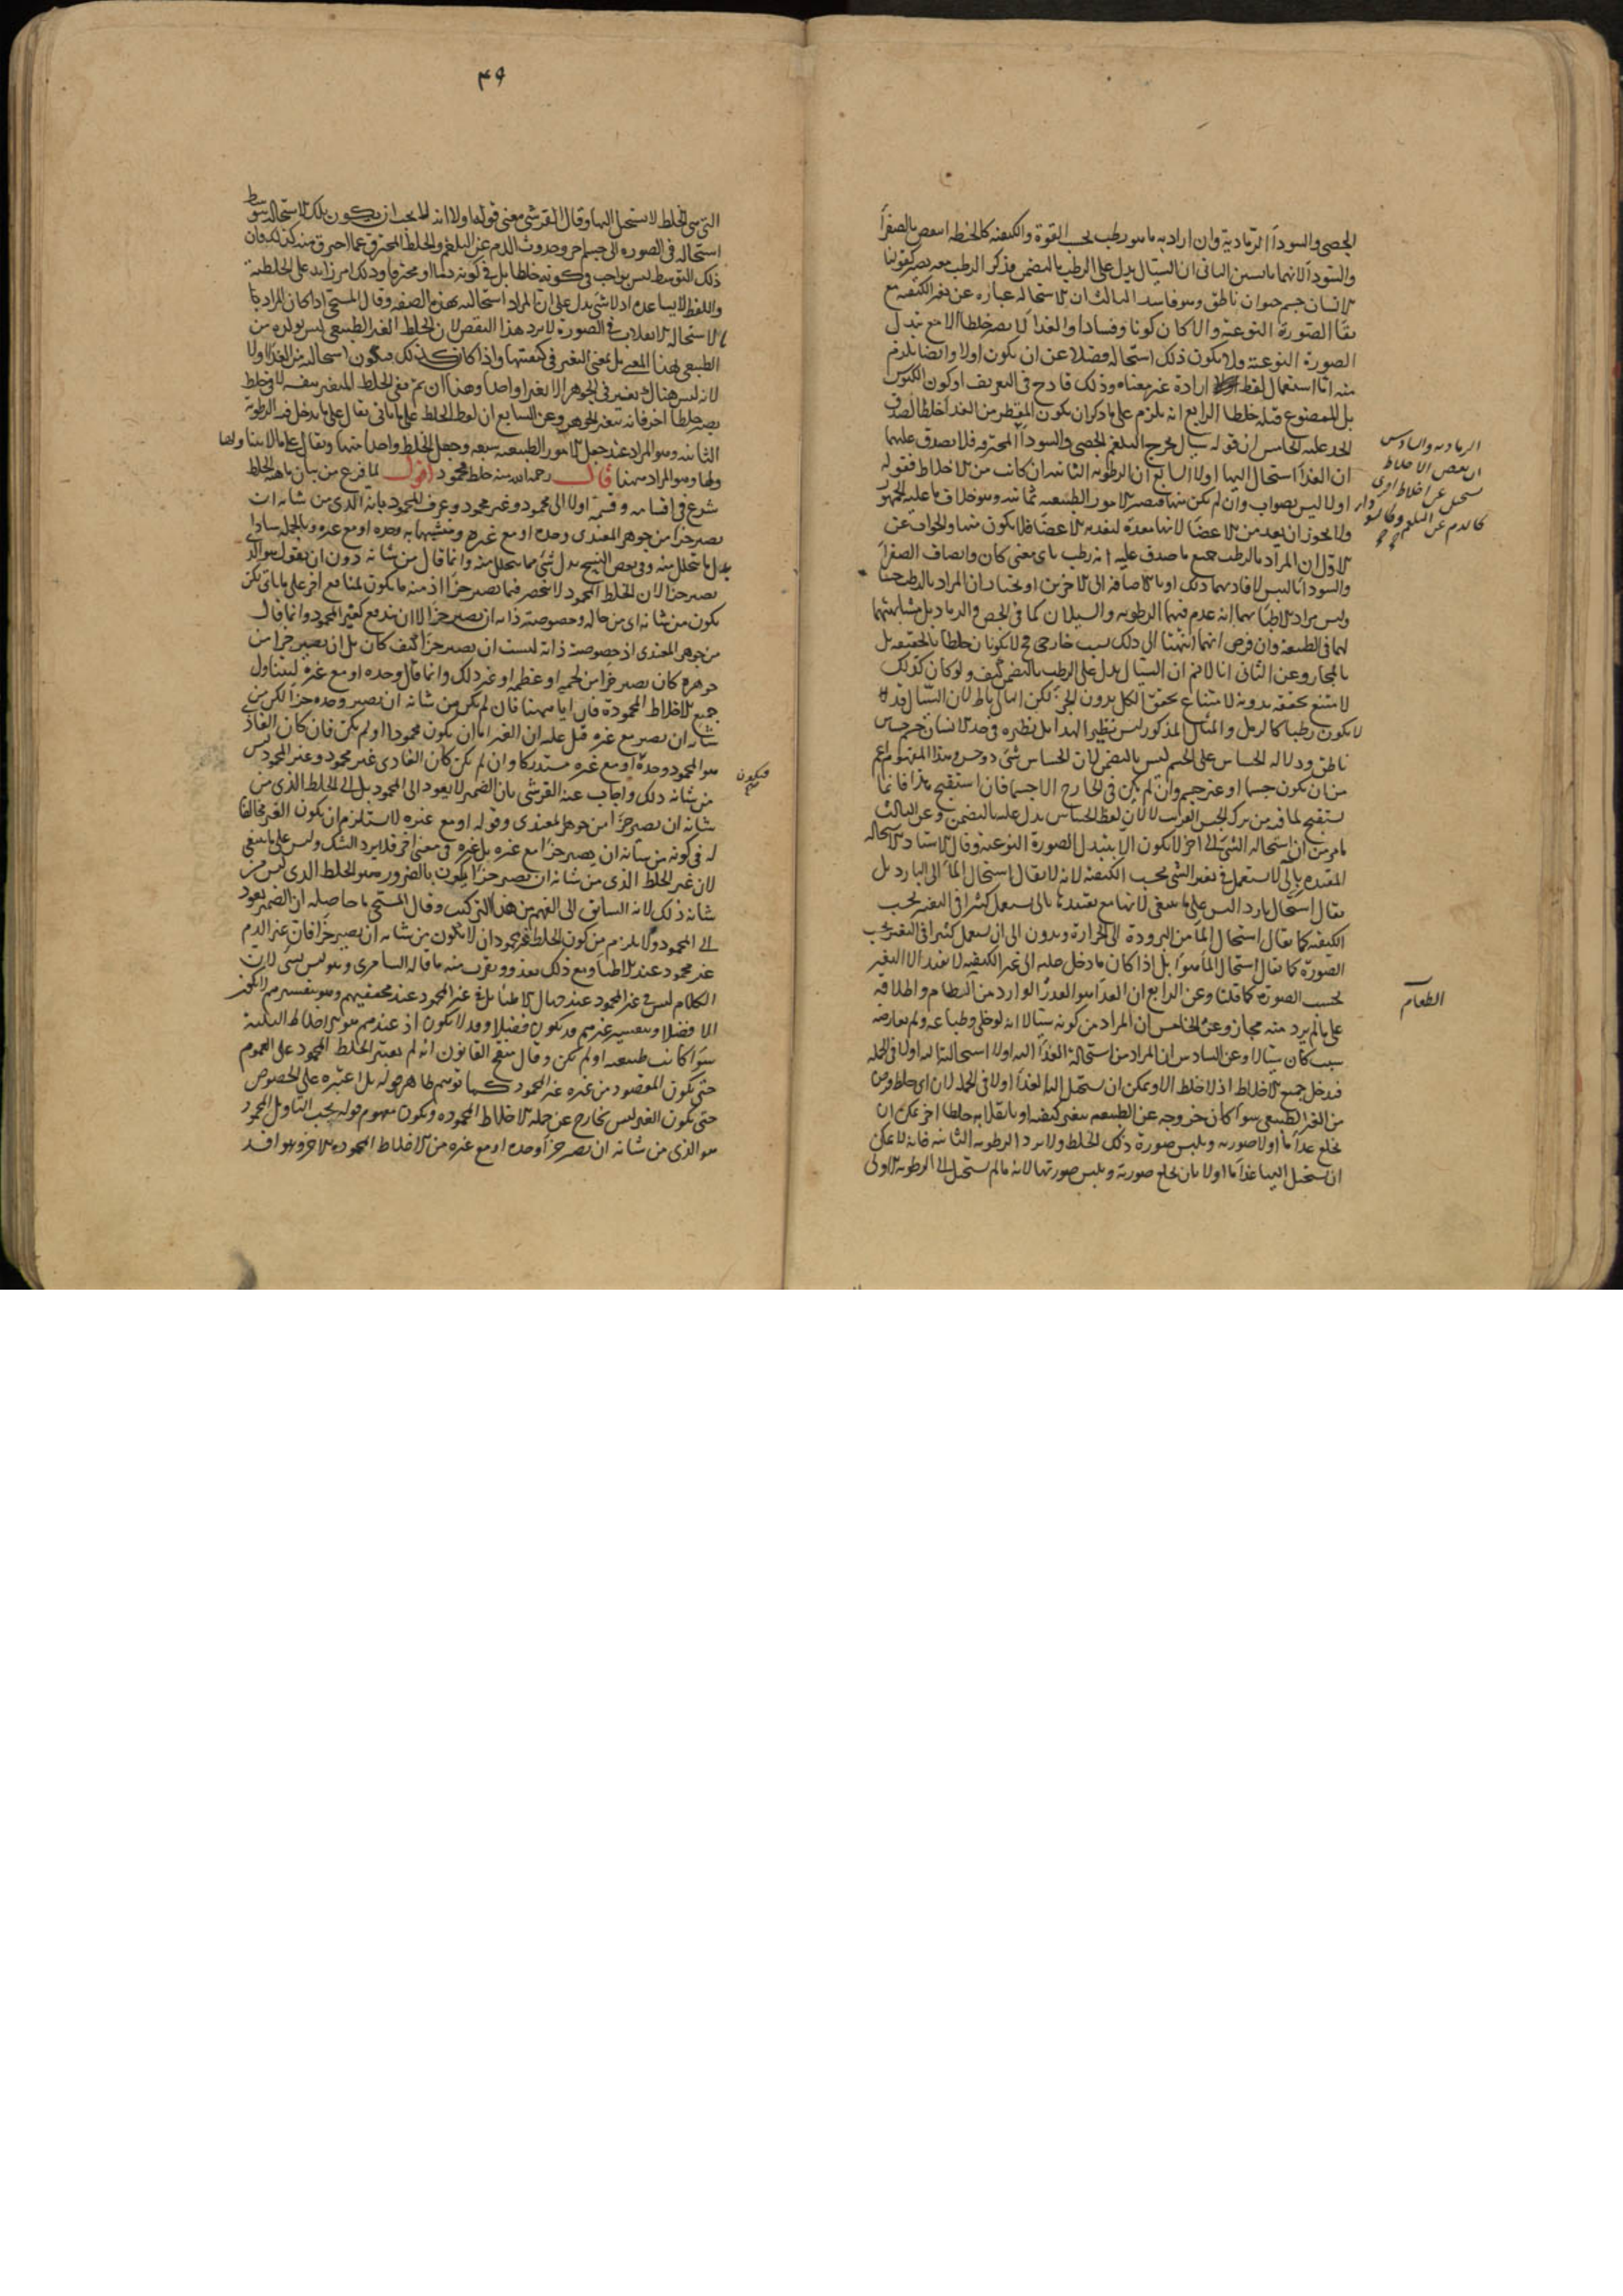 الجصي والسوداء الرمادية وان اراد به ما هو رطب بحسب القوة والكيفية كالحنطة انتقض بالصفراء
والسوداء لانهما يابستين الثاني ان السيال يدل على الرطب بالتضمن فذكر الرطب معه يصير كقولنا
الانسان جسم حيوان ناطق وهو فاسد الثالث ان الاستحالة عبارة عن تغير الكيفية مع
بقاء الصورة النوعية والا كان كونا وفسادا والغذاء لا يصير خلطا الا مع تبدل
الصورة النوعية ولا يكون ذلك استحالة فضلا عن ان يكون اولا وايضا يلزم
منه اما استعمال لفظ ارادة غير معناه وذلك قادح في التعريف او كون الكيلوس
بل الممضوغ قبله خلطا الرابع انه يلزم على ما ذكر ان يكون المقطر من الغذاء خلطا لصدق
الحد عليه الخامس ان قوله سيال يخرج البلغم الجصي والسوداء المحترقة فلا يصدق عليهما
ان الغذاء استحال اليها اولا السابع ان الرطوبة الثانية ان كانت من الاخلاط فقوله
اولا ليس بصواب وان لم يكن منها فيصير الامور الطبيعية ثمانية وهو خلاف ما عليه الجمهور
ولا يجوز ان يعد من الاعضاء لانها معدة لتغذية الاعضاء فلا يكون منها والجواب عن
الاول ان المراد بالرطب جميع ما صدق عليه انه رطب باي معنى كان واتصاف الصفراء
وليس مراد الاطباء بهما انه عدم فيهما الرطوبة والسيلان كما في الجص والرماد بل مشابهتهما
لهما في الطبيعة وان فرض انهما انتهتا الى ذلك بسبب خارجي فح لا يكونان خلطا بالحقيقة بل
بالمجاز وعن الثاني انا لا نم ان السيال يدل على الرطب بالتضمن كيف ولو كان كذلك
لامتنع تحققه بدونه لامتناع تحقق الكل بدون الجزء لكن التالي باطل لان السيال قد
لا يكون رطبا كالرمل والمثال المذكور ليس نظيرا لهذا بل نظيره في حد الانسان جسم حساس
ناطق ودلالة الحساس على الجسم ليس بالتضمن لان الحساس شيء ذو حس وهذا المفهوم اعم
من ان يكون جسما او غير جسم وان لم يكن في الخارج الا جسما فان استقبح هذا فانما
يستقبح لما فيه من ترك الجنس القريب لا لان لفظ الحساس يدل عليه بالتضمن وعن الثالث
ما مر من ان استحالة الشيء الى اخر لا يكون الا بتبدل الصورة النوعية وقال الاستاد الاستحالة
المقيدة بالى لا يستعمل في تغير الشيء بحسب الكيفية لانه لا يقال استحال الماء الى البارد بل
يقال استحال باردا ليس على ما ينبغي لانها مع تقيدها بالى يستعمل كثيرا في التغير بحسب
الكيفية كما يقال استحال الماء من البرودة الى الحرارة وبدون الى ان يستعمل كثيرا في التغير بحسب
الصورة كما يقال استحال الماء هواء بل اذا كان ما دخل عليه الى غير الكيفية لا يفيد الا التغير
بحسب الصورة كما قلنا وعن الرابع ان الغذاء هو الوارد من الطعام واطلاقه
على ما لم يرد منه مجاز وعن الخامس ان المراد من كونه سيالا انه لو خلي وطباعه ولم يعارضه
سبب كان سيالا وعن السادس ان المراد من استحالة الغذاء اليه اولا استحالته اليه اولا في الجملة
فيدخل جميع الاخلاط اذ لا خلط الا ويمكن ان يستحيل اليه الغذاء اولا في الجملة لان اي خلط فرض
من الغير الطبيعي سواء كان خروجه عن الطبيعة بتغير كيفيته او بانقلابه خلطا اخر يمكن ان
يخلع غذاء ما اولا صورته ويلبس صورة ذلك الخلط ولا يرد الرطوبة الثانية فانه لا يمكن
ان يستحيل اليها غذاء ما اولا بان يخلع صورته ويلبس صورتها لانه ما لم يستحل الى الرطوبة الاولى
الرمادية والسادس
ان بعض الاخلاط
يستحيل عن اخلاط اخرى
كالدم عن البلغم
الطعام
٤٩
التي هي الخلط لا يستحيل اليها وقال القرشي معنى قوله اولا انه لا يجب ان يكون تلك الاستحالة بتوسط
استحالة في الصورة الى جسم اخر وحدوث الدم عن البلغم والخلط المحترق عما احترق منه كذلك فان
ذلك التوسط ليس بواجب في كونه خلطا بل في كونه دما او محترقا وذلك امر زائد على الخلطية
واللفظ لا يساعده اذ لا شيء يدل على ان المراد استحالته بهذه الصفة وقال المسيحي اذا كان المراد
بالاستحالة الانقلاب في الصورة لا يرد هذا النقض لان الخلط الغير الطبيعي ليس تولده من
الطبيعي بهذا المعنى بل بمعنى التغير في كيفيتها واذا كان كذلك فيكون استحالته من الغذاء اولا
لانه ليس هناك تغير في الجوهر الا تغيرا واحدا وهذا ان تم في الخلط المتغير بنفسه لا في خلط
يصير خلطا اخر فانه تغير الجوهر وعن السابع ان لفظ الخلط على ما ياتي يقال على ما يدخل فيه الرطوبة
الثانية وهو المراد عند جعل الامور الطبيعية سبعة وجعل الخلط واحدا منها ويقال على ما لا يتناولها
وهو المراد ههنا قال رحمه الله منه خلط محمود اقول لما فرغ من بيان ماهية الخلط
شرع في اقسامه وقسمه اولا الى محمود وغير محمود وعرف المحمود بانه الذي من شانه ان
يصير جزءا من جوهر المغتذي وحده او مع غيره ومتشبها به وحده او مع غيره وبالجملة سادا
بدل ما يتحلل منه وفي بعض النسخ بدل شيء مما يتحلل منه وانما قال من شانه دون ان يقول هو الذي
يصير جزءا لان الخلط المحمود لا ينحصر فيما يصير جزءا اذ منه ما يكون لمنافع اخر على ما ياتي لكن
يكون من شانه اي من حاله وخصوصية ذاته ان يصير جزءا
من جوهر المغتذي اذ خصوصية ذاته ليست ان يصير جزءا كيف كان بل ان يصير جزءا من
جوهره كان يصير جزءا من لحمه او عظمه او غير ذلك وانما قال وحده او مع غيره ليتناول
جميع الاخلاط المحمودة فان اياما ههنا فان لم يكن من شانه ان يصير وحده جزءا لكن من
شانه ان يصير مع غيره قيل عليه ان الغير اما ان يكون محمودا او لم يكن فان كان
هو المحمود وحده او مع غيره مستدركا وان لم يكن كان الغاذي غير محمود وغير المحمود ليس
من شانه ذلك واجاب عنه القرشي بان الضمير لا يعود الى المحمود بل الى الخلط الذي من
شانه ان يصير جزءا من جوهر المغتذي وقوله او مع غيره لا يستلزم ان يكون الغير مخالفا
له في كونه من شانه ان يصير جزءا مع غيره بل غيره في معنى اخر فلا يرد الشك وليس على ما ينبغي
لان غير الخلط الذي من شانه ان يصير جزءا يكون بالضرورة هو الخلط الذي ليس من
شانه ذلك لانه السابق الى الفهم من هذا التركيب وقال المسيحي ما حاصله ان الضمير يعود
الى المحمود ولا يلزم من كون الخلط غير محمود ان لا يكون من شانه ان يصير جزءا فان غير الدم
غير محمود عند الاطباء ومع ذلك يغذو ويقرب منه ما قاله السامري وهو ليس بشيء لان
الكلام ليس في غير المحمود عند جهال الاطباء بل في غير المحمود عند محققيهم وهو بتفسيرهم لا يكون
الا فضلا وبتفسير غيرهم قد يكون فضلا وقد لا يكون اذ عندهم هو الاخلاط الثلاثة
سواء كانت طبيعية او لم يكن وقال منقح القانون انه لم يعتبر الخلط المحمود على العموم
حتى يكون المقصود من غيره غير المحمود كما توهم ظاهر قوله بل اعتبره على الخصوص
حتى يكون الغير ليس بخارج عن جملة الاخلاط المحمودة ويكون مفهوم قوله بحسب التاويل المحمود
هو الذي من شانه ان يصير جزءا وحده او مع غيره من الاخلاط المحمودة الاخر وهو فاسد
فيكون